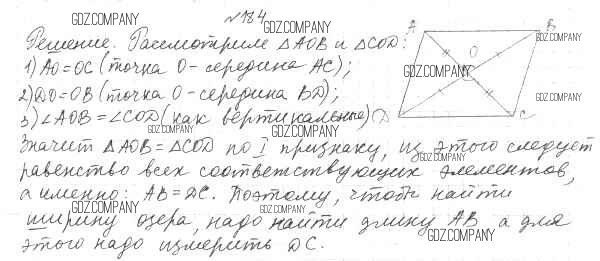 №184
GDZ.COMPANY
GDZ.COMPANY
Решение. Рассмотрим △AOB и △COD:
1) AO=OC (точка O - середина AC);
2) DO=OB (точка O - середина BD);
3) ∠AOB=∠COD (как вертикальные)
GDZ.COMPANY
GDZ.COMPANY
Значит △AOB=△COD по I признаку, из этого следует
равенство всех соответствующих элементов,
GDZ.COMPANY
а именно: AB=DC. Поэтому, чтобы найти
ширину озера, надо найти длину AB а для
GDZ.COMPANY
GDZ.COMPANY
этого надо измерить DC.
GDZ.COMPANY
A
B
GDZ.COMPANY
O
GDZ.COMPANY
GDZ.COMPANY
D
C